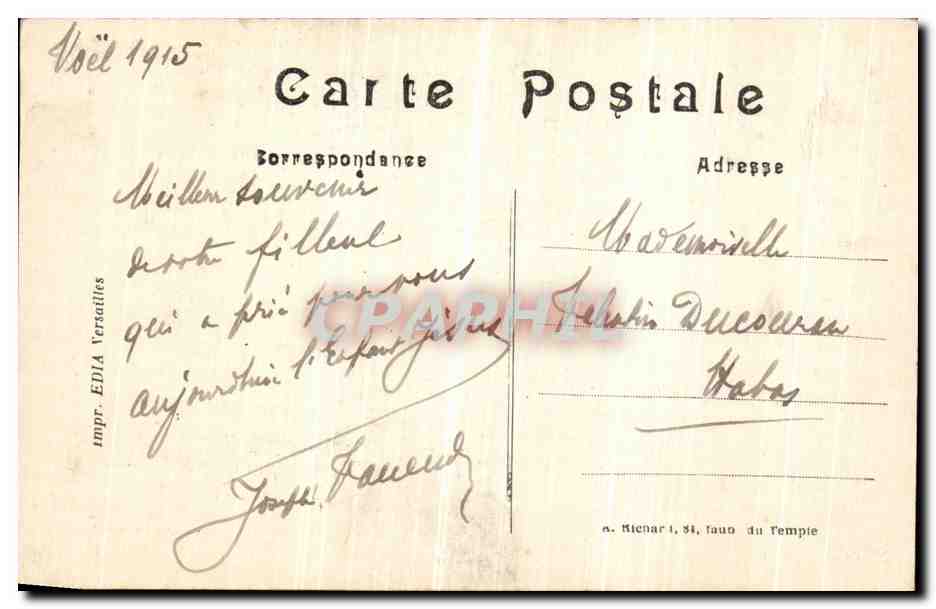 Noël 1915
Carte Postale
Correspondance
Adresse
Meilleur souvenir
de votre filleul
qui a prié pour vous
aujourd'hui l'Enfant Jésus
Joseph
Mademoiselle
Ducournau
Habas
Impr. EDIA Versailles
A. Richard, 84, faub du Temple
CPAPHIL